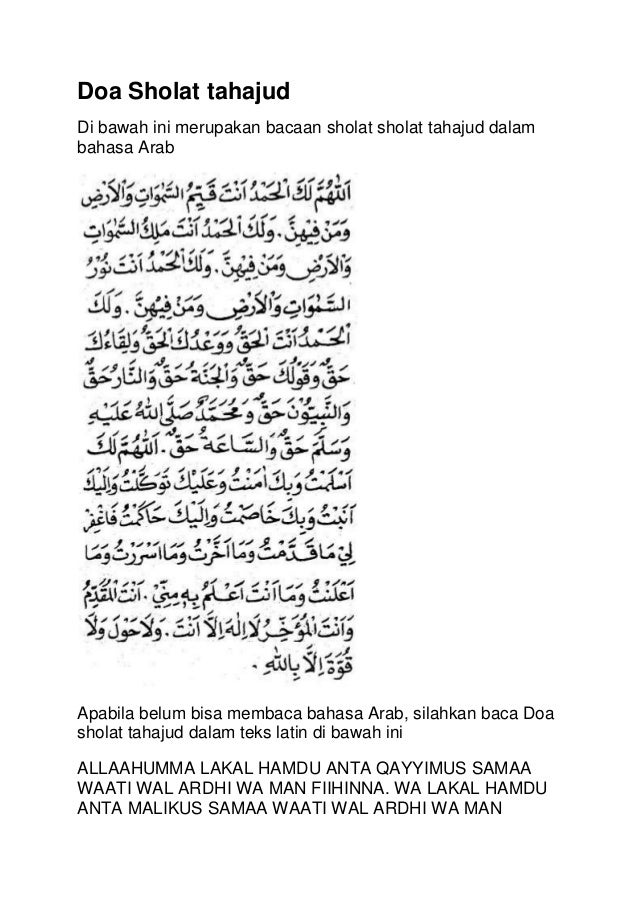 Doa Sholat tahajud
Di bawah ini merupakan bacaan sholat sholat tahajud dalam
bahasa Arab
اَللّٰهُمَّ لَكَ الْحَمْدُ اَنْتَ قَيِّمُ السَّمٰوَاتِ وَالْاَرْضِ
وَمَنْ فِيْهِنَّ. وَلَكَ الْحَمْدُ اَنْتَ مَلِكُ السَّمٰوَاتِ
وَالْاَرْضِ وَمَنْ فِيْهِنَّ. وَلَكَ الْحَمْدُ اَنْتَ نُوْرُ
السَّمٰوَاتِ وَالْاَرْضِ وَمَنْ فِيْهِنَّ. وَلَكَ
الْحَمْدُ اَنْتَ الْحَقُّ وَوَعْدُكَ الْحَقُّ وَلِقَاءُكَ
حَقٌّ وَقَوْلُكَ حَقٌّ وَالْجَنَّةُ حَقٌّ وَالنَّارُ حَقٌّ
وَالنَّبِيُّوْنَ حَقٌّ وَمُحَمَّدٌ صَلَّى اللّٰهُ عَلَيْهِ
وَسَلَّمَ حَقٌّ وَالسَّاعَةُ حَقٌّ. اَللّٰهُمَّ لَكَ
اَسْلَمْتُ وَبِكَ اٰمَنْتُ وَعَلَيْكَ تَوَكَّلْتُ وَاِلَيْكَ
اَنَبْتُ وَبِكَ خَاصَمْتُ وَاِلَيْكَ حَاكَمْتُ فَاغْفِرْ
لِيْ مَا قَدَّمْتُ وَمَا اَخَّرْتُ وَمَا اَسْرَرْتُ وَمَا
اَعْلَنْتُ وَمَا اَنْتَ اَعْلَمُ بِهِ مِنِّيْ. اَنْتَ الْمُقَدِّمُ
وَاَنْتَ الْمُؤَخِّرُ لَا اِلٰهَ اِلَّا اَنْتَ. وَلَا حَوْلَ وَلَا
قُوَّةَ اِلَّا بِاللّٰهِ.
Apabila belum bisa membaca bahasa Arab, silahkan baca Doa
sholat tahajud dalam teks latin di bawah ini
ALLAAHUMMA LAKAL HAMDU ANTA QAYYIMUS SAMAA
WAATI WAL ARDHI WA MAN FIIHINNA. WA LAKAL HAMDU
ANTA MALIKUS SAMAA WAATI WAL ARDHI WA MAN